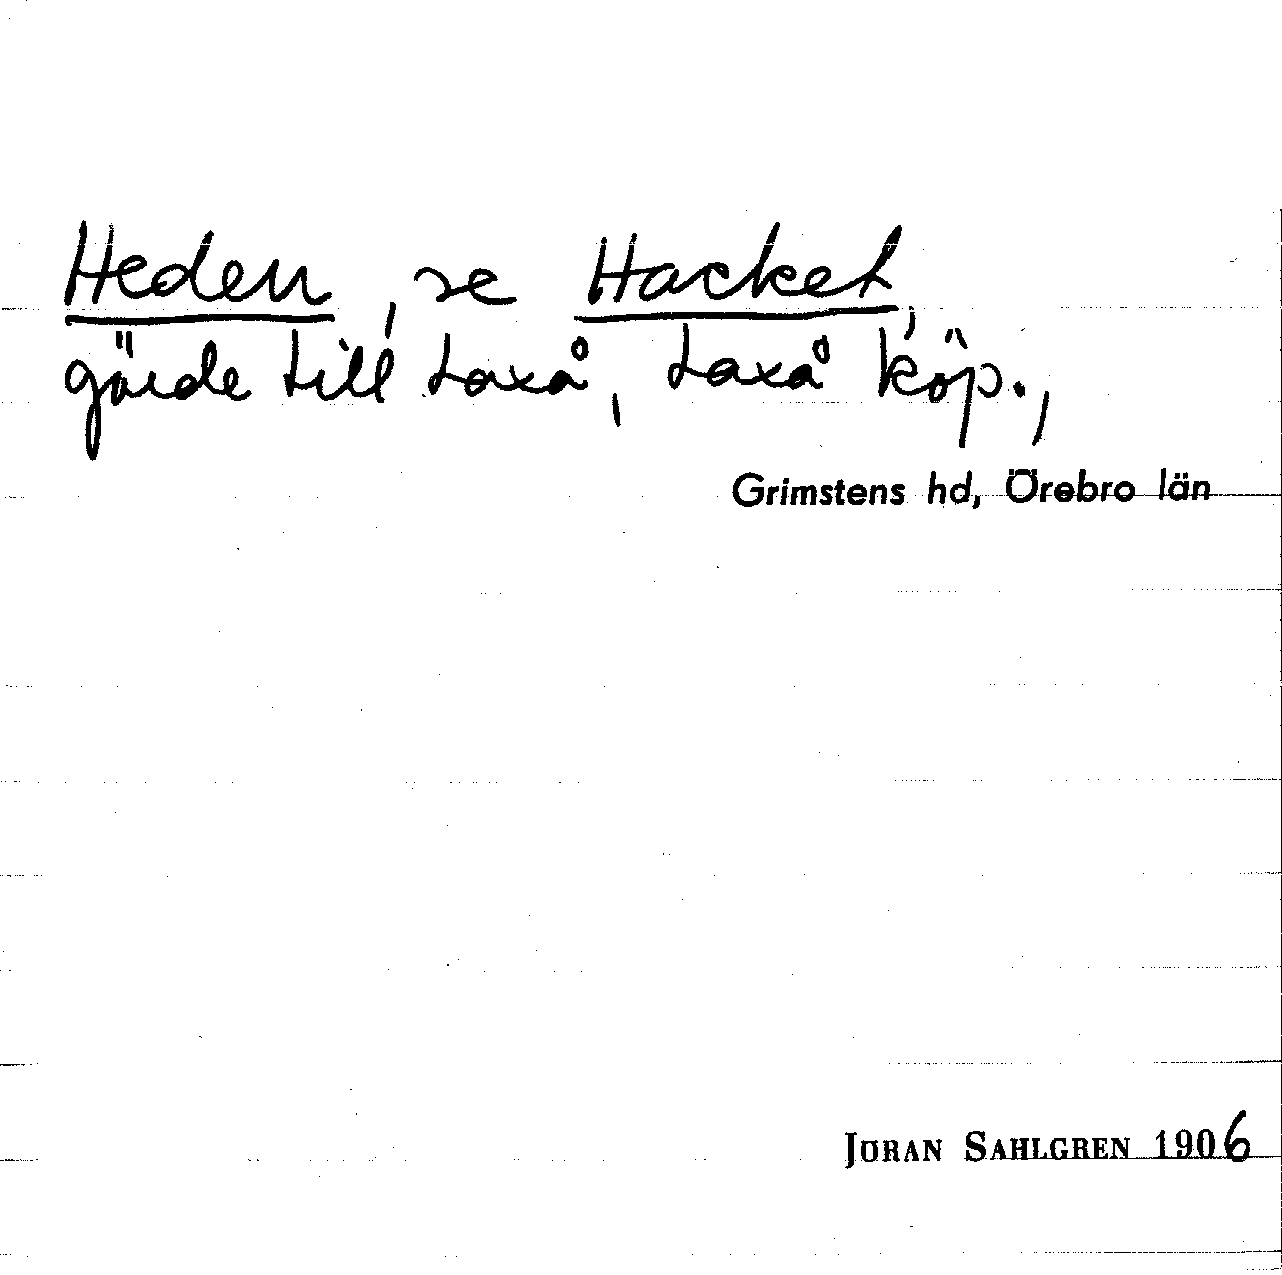 Heden, se Hacket,
gärde till Laxå, Laxå köp.,
Grimstens hd, Örebro län
JÖRAN SAHLGREN 1906